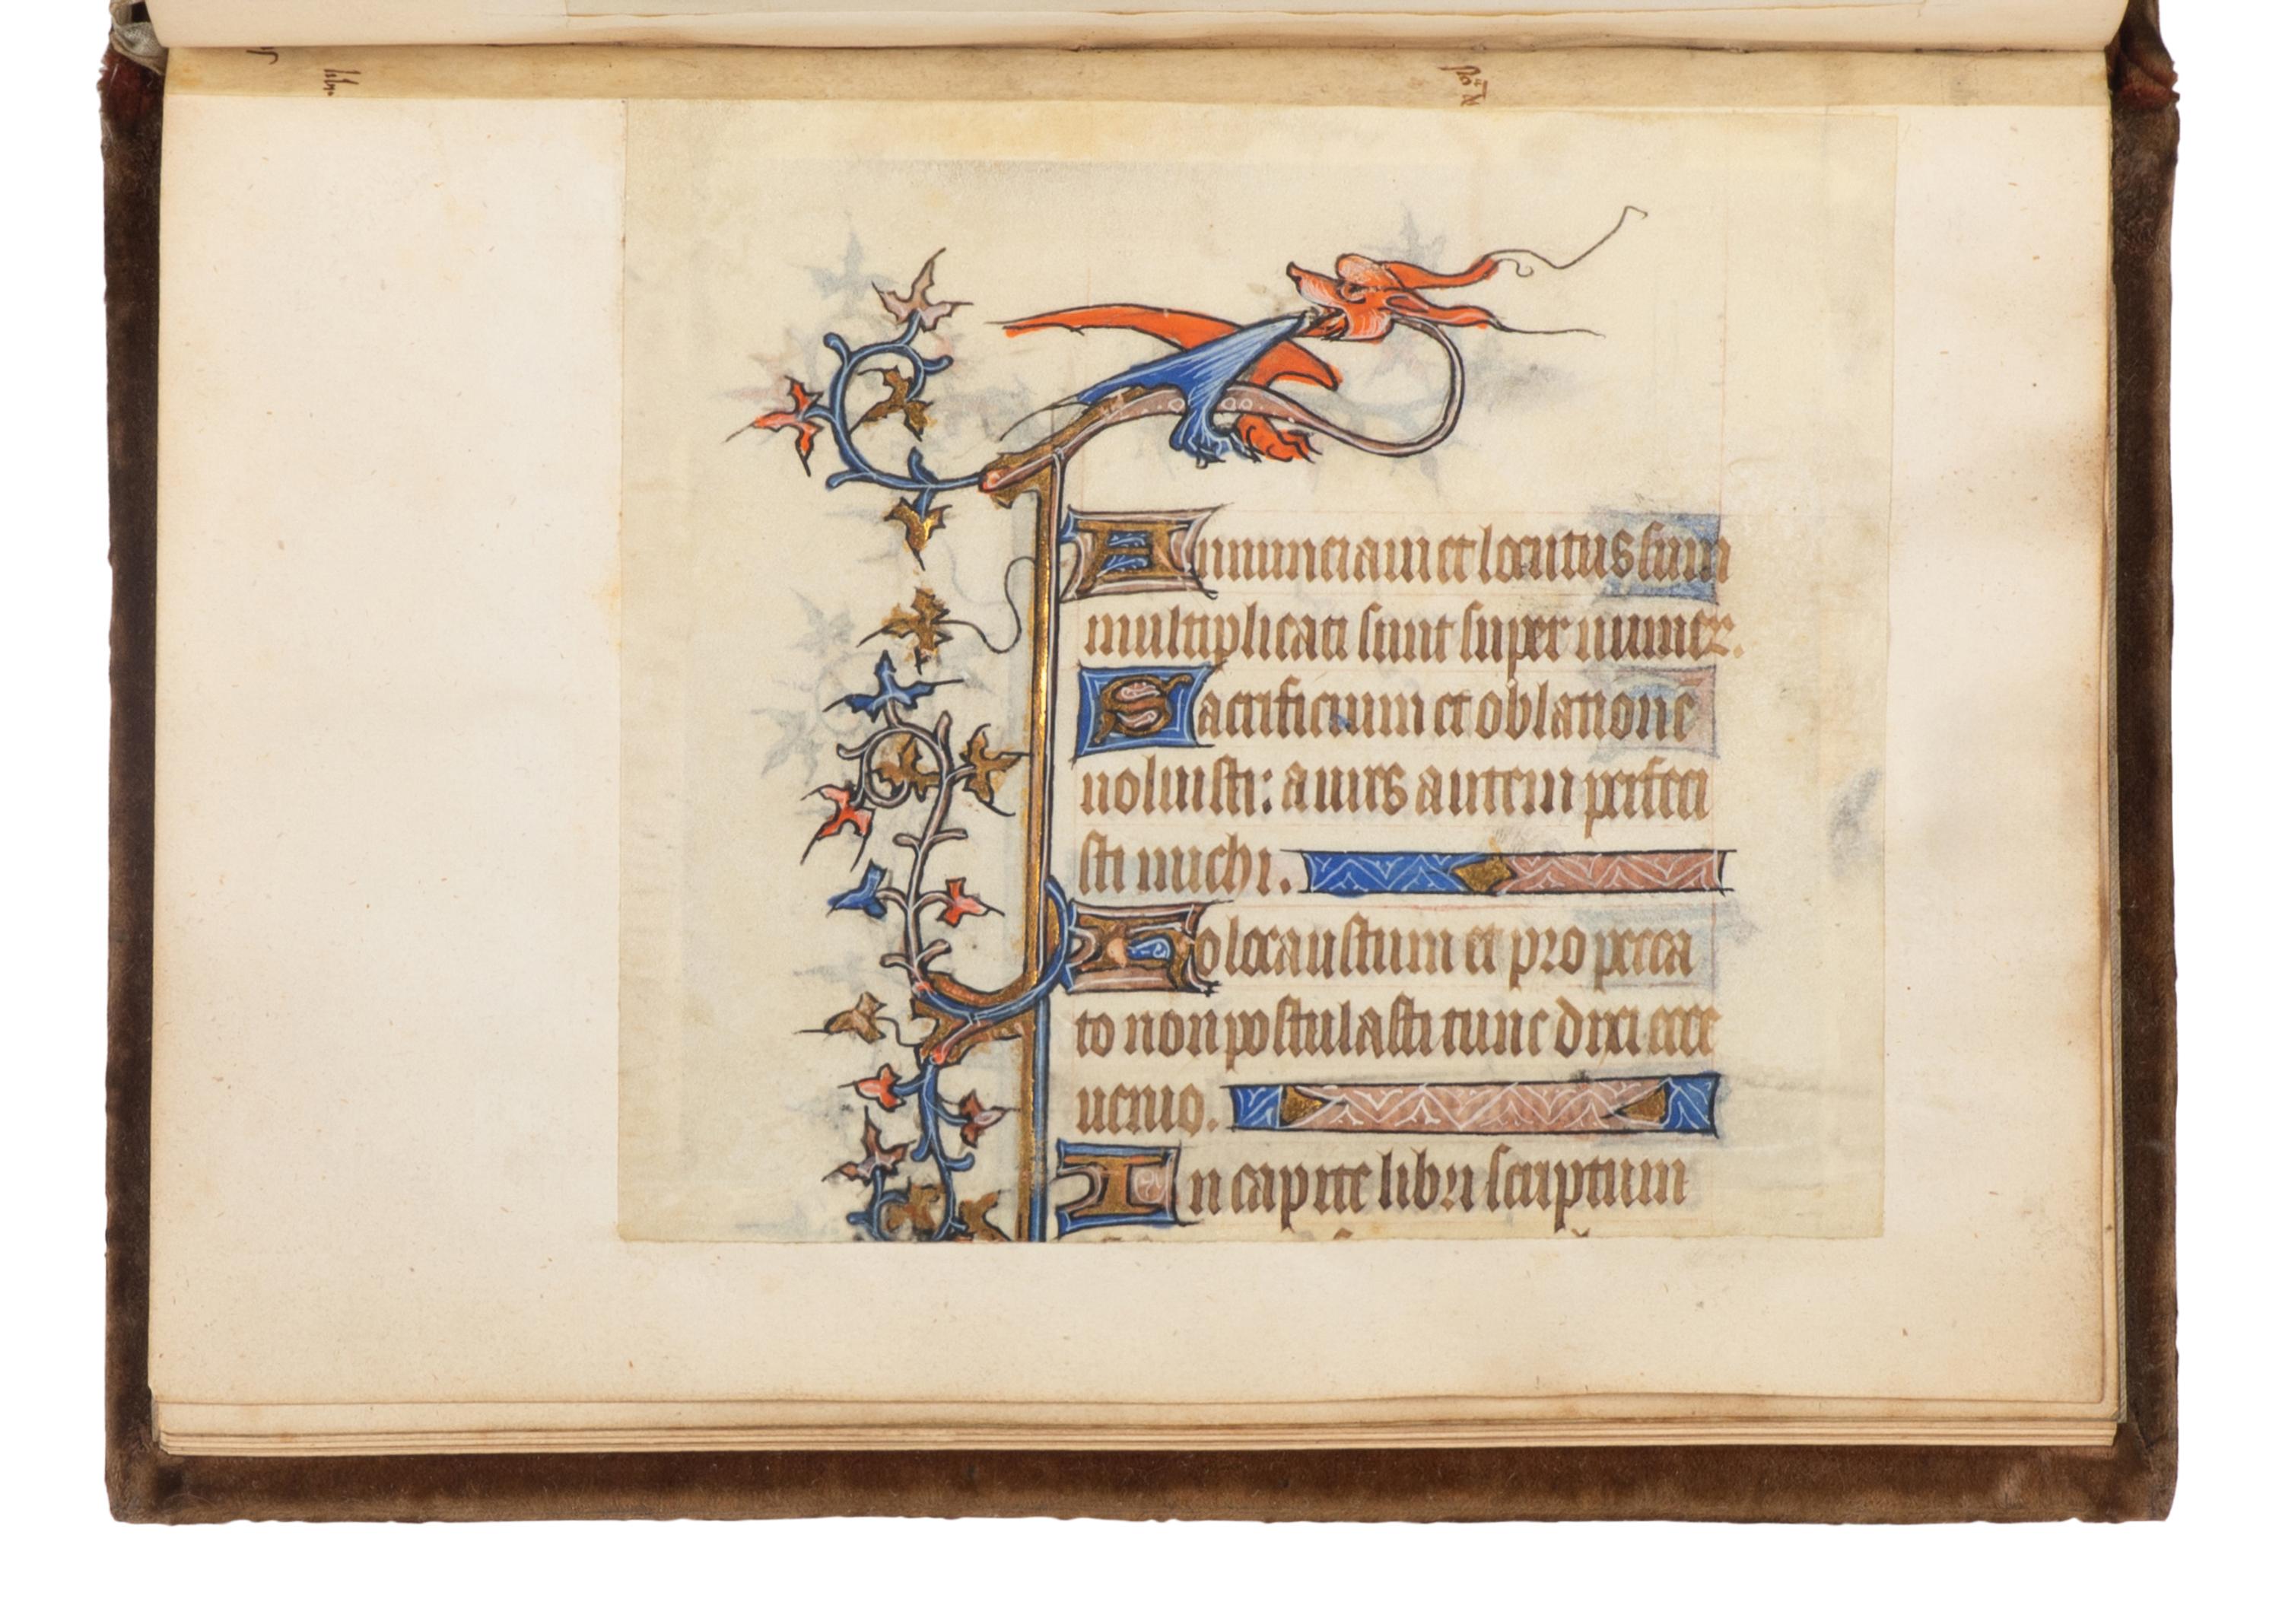 Annunciaui et locutus sum
multiplicati sunt super numer.
Sacrificium et oblatione
uoluisti: aures autem perfeci
sti michi.
Holocaustum et pro pecca
to non postulasti tunc dixi ecce
uenio.
In capite libri scriptum